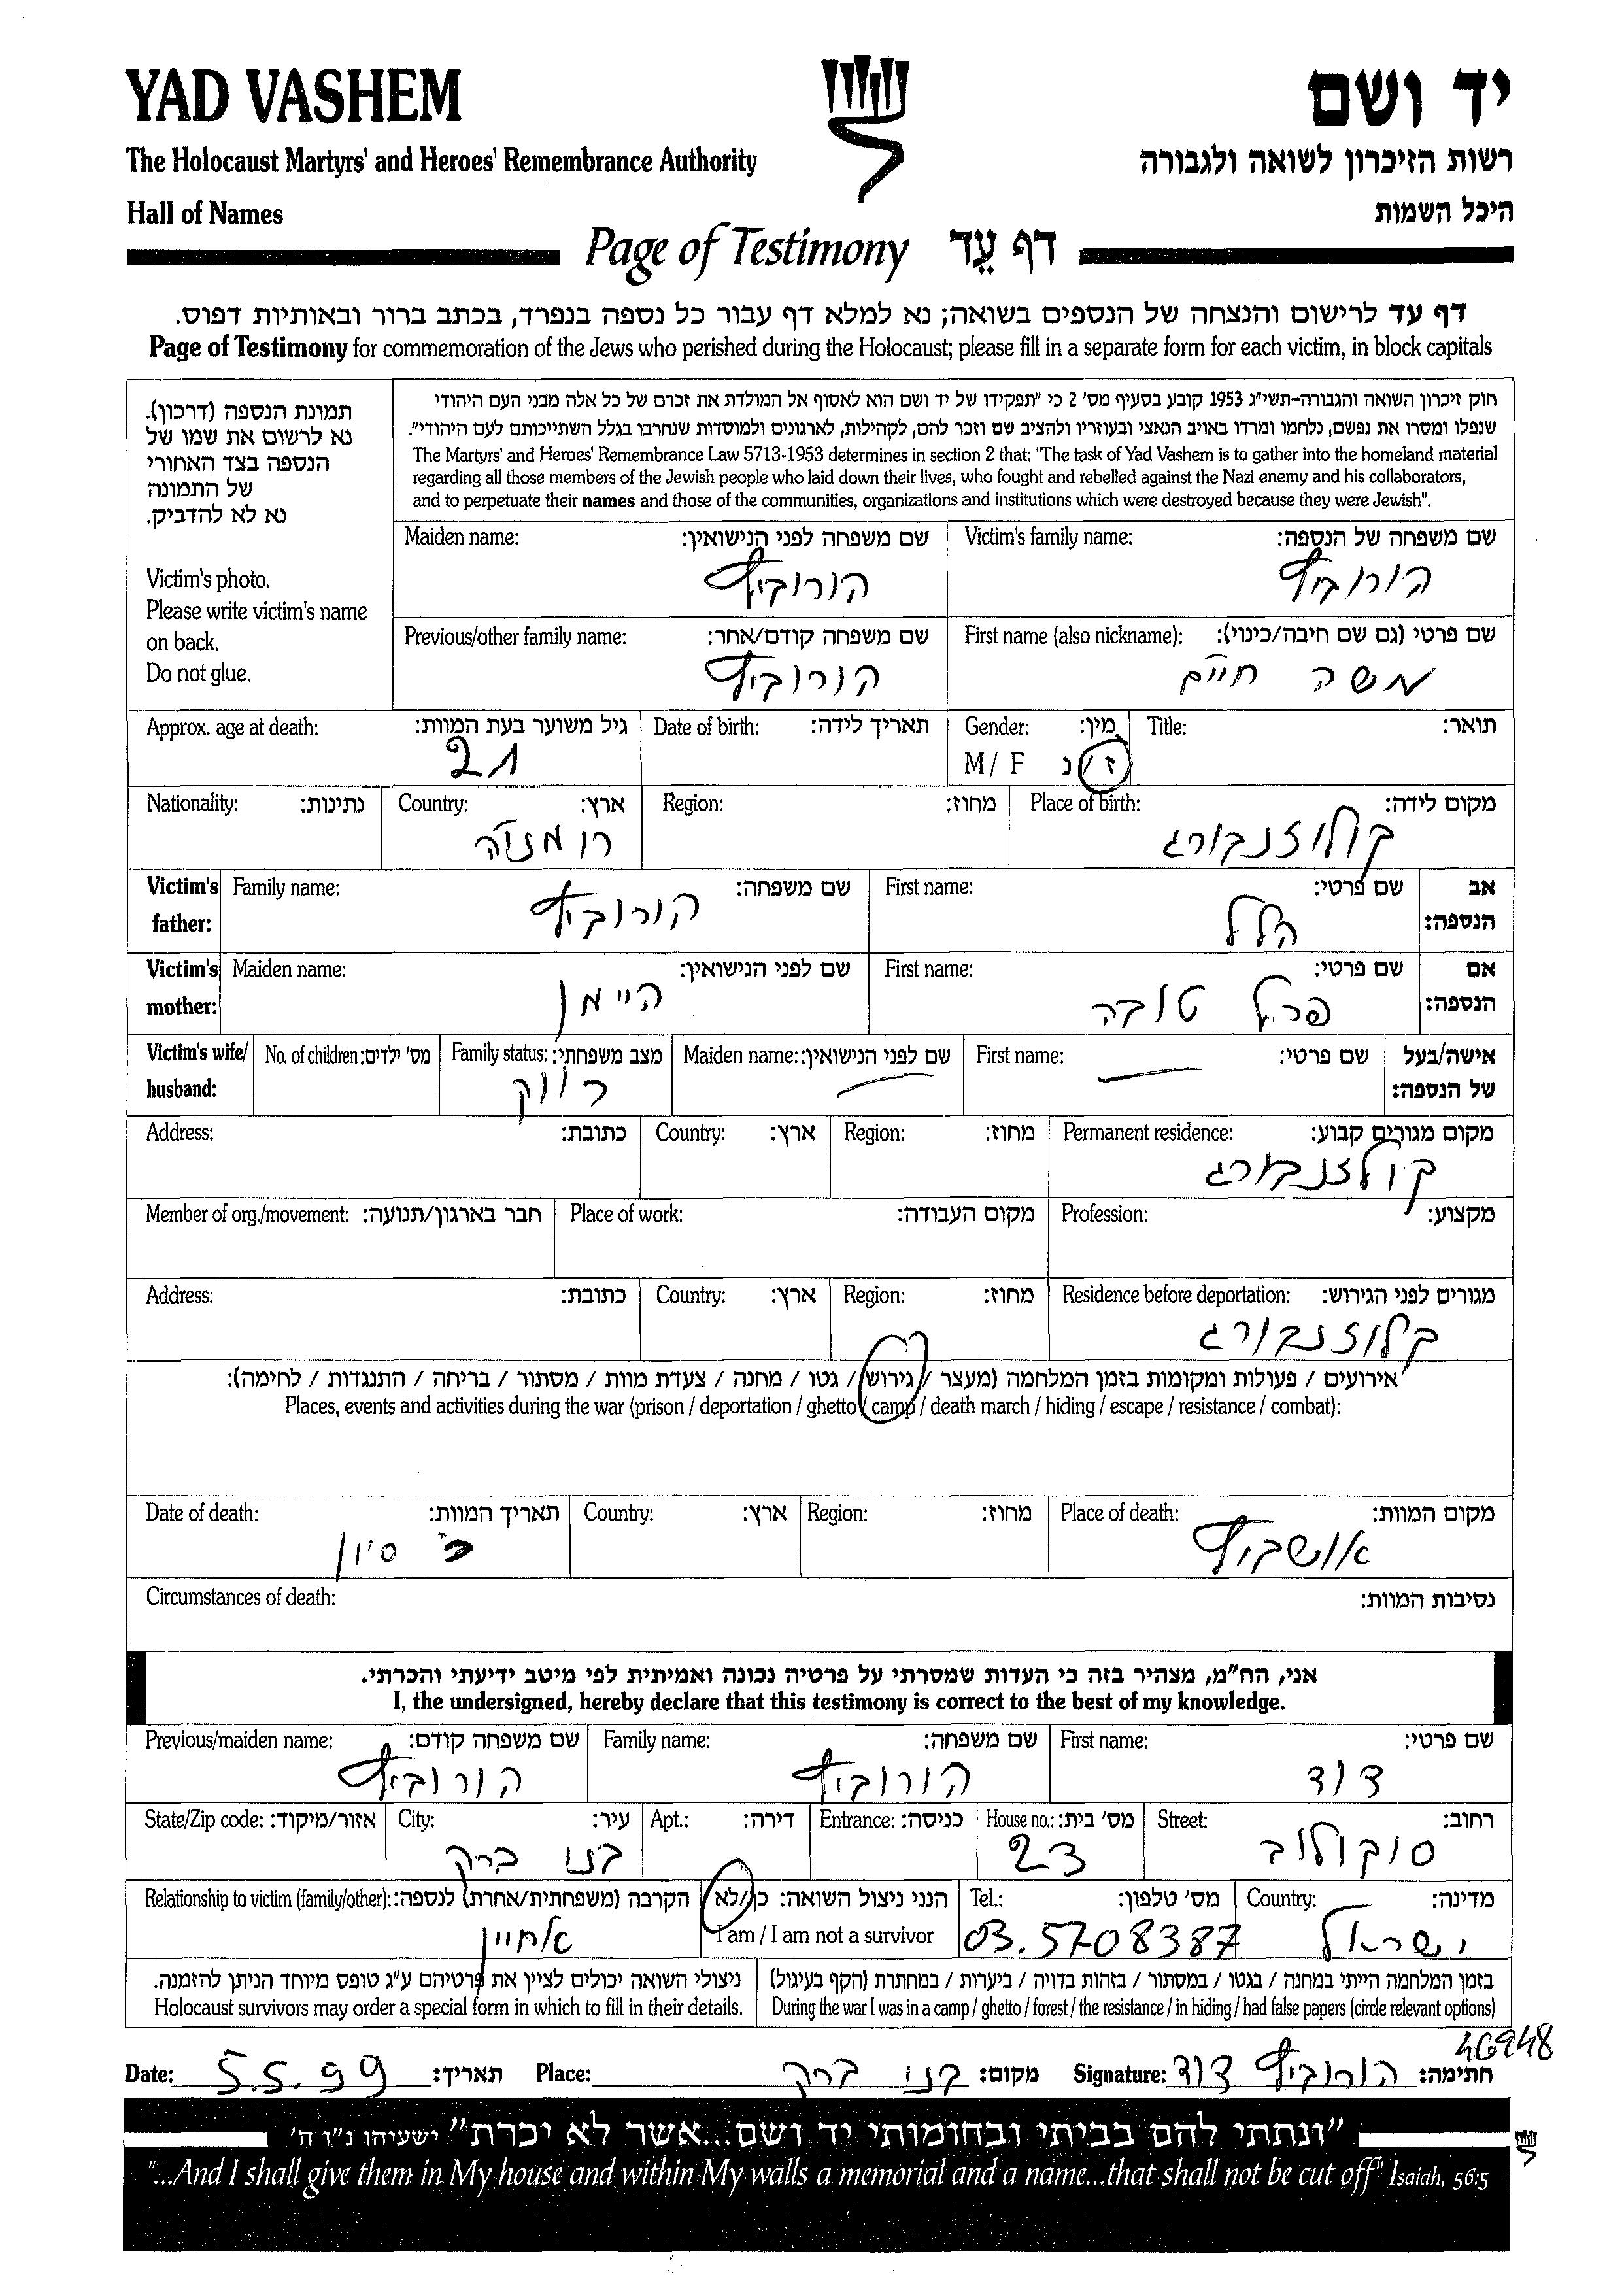 YAD VASHEM
יד ושם
The Holocaust Martyrs' and Heroes' Remembrance Authority
רשות הזיכרון לשואה ולגבורה
Hall of Names
היכל השמות
Page of Testimony דף עֵד
דף עד לרישום והנצחה של הנספים בשואה; נא למלא דף עבור כל נספה בנפרד, בכתב ברור ובאותיות דפוס.
Page of Testimony for commemoration of the Jews who perished during the Holocaust; please fill in a separate form for each victim, in block capitals
תמונת הנספה (דרכון).
נא לרשום את שמו של
הנספה בצד האחורי
של התמונה
נא לא להדביק.
Victim's photo.
Please write victim's name
on back.
Do not glue.
חוק זיכרון השואה והגבורה-תשי"ג 1953 קובע בסעיף מס' 2 כי "תפקידו של יד ושם הוא לאסוף אל המולדת את זכרם של כל אלה מבני העם היהודי
שנפלו ומסרו את נפשם, נלחמו ומרדו באויב הנאצי ובעוזריו ולהציב שם וזכר להם, לקהילות, לארגונים ולמוסדות שנחרבו בגלל השתייכותם לעם היהודי".
The Martyrs' and Heroes' Remembrance Law 5713-1953 determines in section 2 that: "The task of Yad Vashem is to gather into the homeland material
regarding all those members of the Jewish people who laid down their lives, who fought and rebelled against the Nazi enemy and his collaborators,
and to perpetuate their names and those of the communities, organizations and institutions which were destroyed because they were Jewish".
Victim's family name: שם משפחה של הנספה:
הורוביץ
Maiden name: שם משפחה לפני הנישואין:
הורוביץ
First name (also nickname): שם פרטי (גם שם חיבה/כינוי):
משה חיים
Previous/other family name: שם משפחה קודם/אחר:
הורוביץ
Title: תואר:
Gender: מין:
M / F ז/נ
Date of birth: תאריך לידה:
Approx. age at death: גיל משוער בעת המוות:
21
Place of birth: מקום לידה:
קולוזנבורג
Region: מחוז:
Country: ארץ:
רומניה
Nationality: נתינות:
Victim's father: אב הנספה:
First name: שם פרטי:
הלל
Family name: שם משפחה:
הורוביץ
Victim's mother: אם הנספה:
First name: שם פרטי:
פרל טובה
Maiden name: שם לפני הנישואין:
היימן
Victim's wife/ husband: אישה/בעל של הנספה:
First name: שם פרטי:
Maiden name: שם לפני הנישואין:
Family status: מצב משפחתי:
רווק
No. of children: מס' ילדים:
Permanent residence: מקום מגורים קבוע:
קולזנבורג
Region: מחוז:
Country: ארץ:
Address: כתובת:
Profession: מקצוע:
Place of work: מקום העבודה:
Member of org./movement: חבר בארגון/תנועה:
Residence before deportation: מגורים לפני הגירוש:
קלוזנבורג
Region: מחוז:
Country: ארץ:
Address: כתובת:
אירועים / פעולות ומקומות בזמן המלחמה (מעצר / גירוש / גטו / מחנה / צעדת מוות / מסתור / בריחה / התנגדות / לחימה):
Places, events and activities during the war (prison / deportation / ghetto / camp / death march / hiding / escape / resistance / combat):
Place of death: מקום המוות:
אושביץ
Region: מחוז:
Country: ארץ:
Date of death: תאריך המוות:
כ' סיון
Circumstances of death: נסיבות המוות:
אני, הח"מ, מצהיר בזה כי העדות שמסרתי על פרטיה נכונה ואמיתית לפי מיטב ידיעתי והכרתי.
I, the undersigned, hereby declare that this testimony is correct to the best of my knowledge.
First name: שם פרטי:
דוד
Family name: שם משפחה:
הורוביץ
Previous/maiden name: שם משפחה קודם:
הורוביץ
Street: רחוב:
סוקולוב
House no.: מס' בית:
23
Entrance: כניסה:
Apt.: דירה:
City: עיר:
בני ברק
State/Zip code: אזור/מיקוד:
Country: מדינה:
ישראל
Tel.: מס' טלפון:
03.5708387
הנני ניצול השואה: כן/לא
I am / I am not a survivor
Relationship to victim (family/other): הקרבה (משפחתית/אחרת) לנספה:
אחיין
בזמן המלחמה הייתי במחנה / בגטו / במסתור / בזהות בדויה / ביערות / במחתרת (הקף בעיגול)
During the war I was in a camp / ghetto / forest / the resistance / in hiding / had false papers (circle relevant options)
ניצולי השואה יכולים לציין את פרטיהם ע"ג טופס מיוחד הניתן להזמנה.
Holocaust survivors may order a special form in which to fill in their details.
46948
Date: 5.5.99 תאריך: Place: בני ברק מקום: Signature: הורוביץ דוד חתימה:
"ונתתי להם בביתי ובחומותי יד ושם...אשר לא יכרת" ישעיהו נ"ו ה'
"...And I shall give them in My house and within My walls a memorial and a name...that shall not be cut off" Isaiah, 56:5